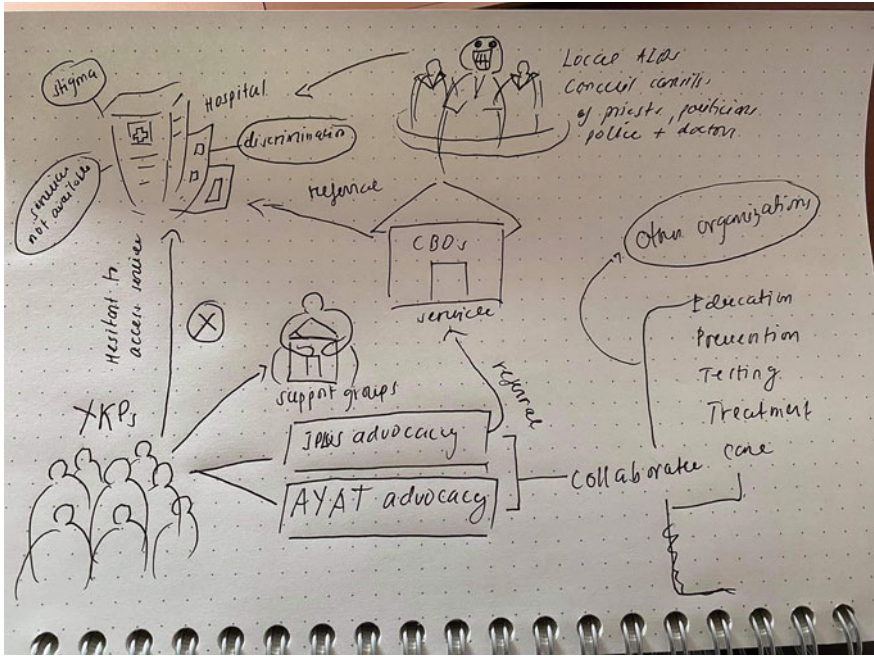 stigma
Hospital
discrimination
services
not available
Local AIDS
Council consists
of priests, politicians
police + doctors
referral
CBOs
services
Other organizations
Education
Prevention
Testing
Treatment
Care
Hesitant to
access services
X
support groups
referral
YKPs
advocacy
AYAT advocacy
Collaborate